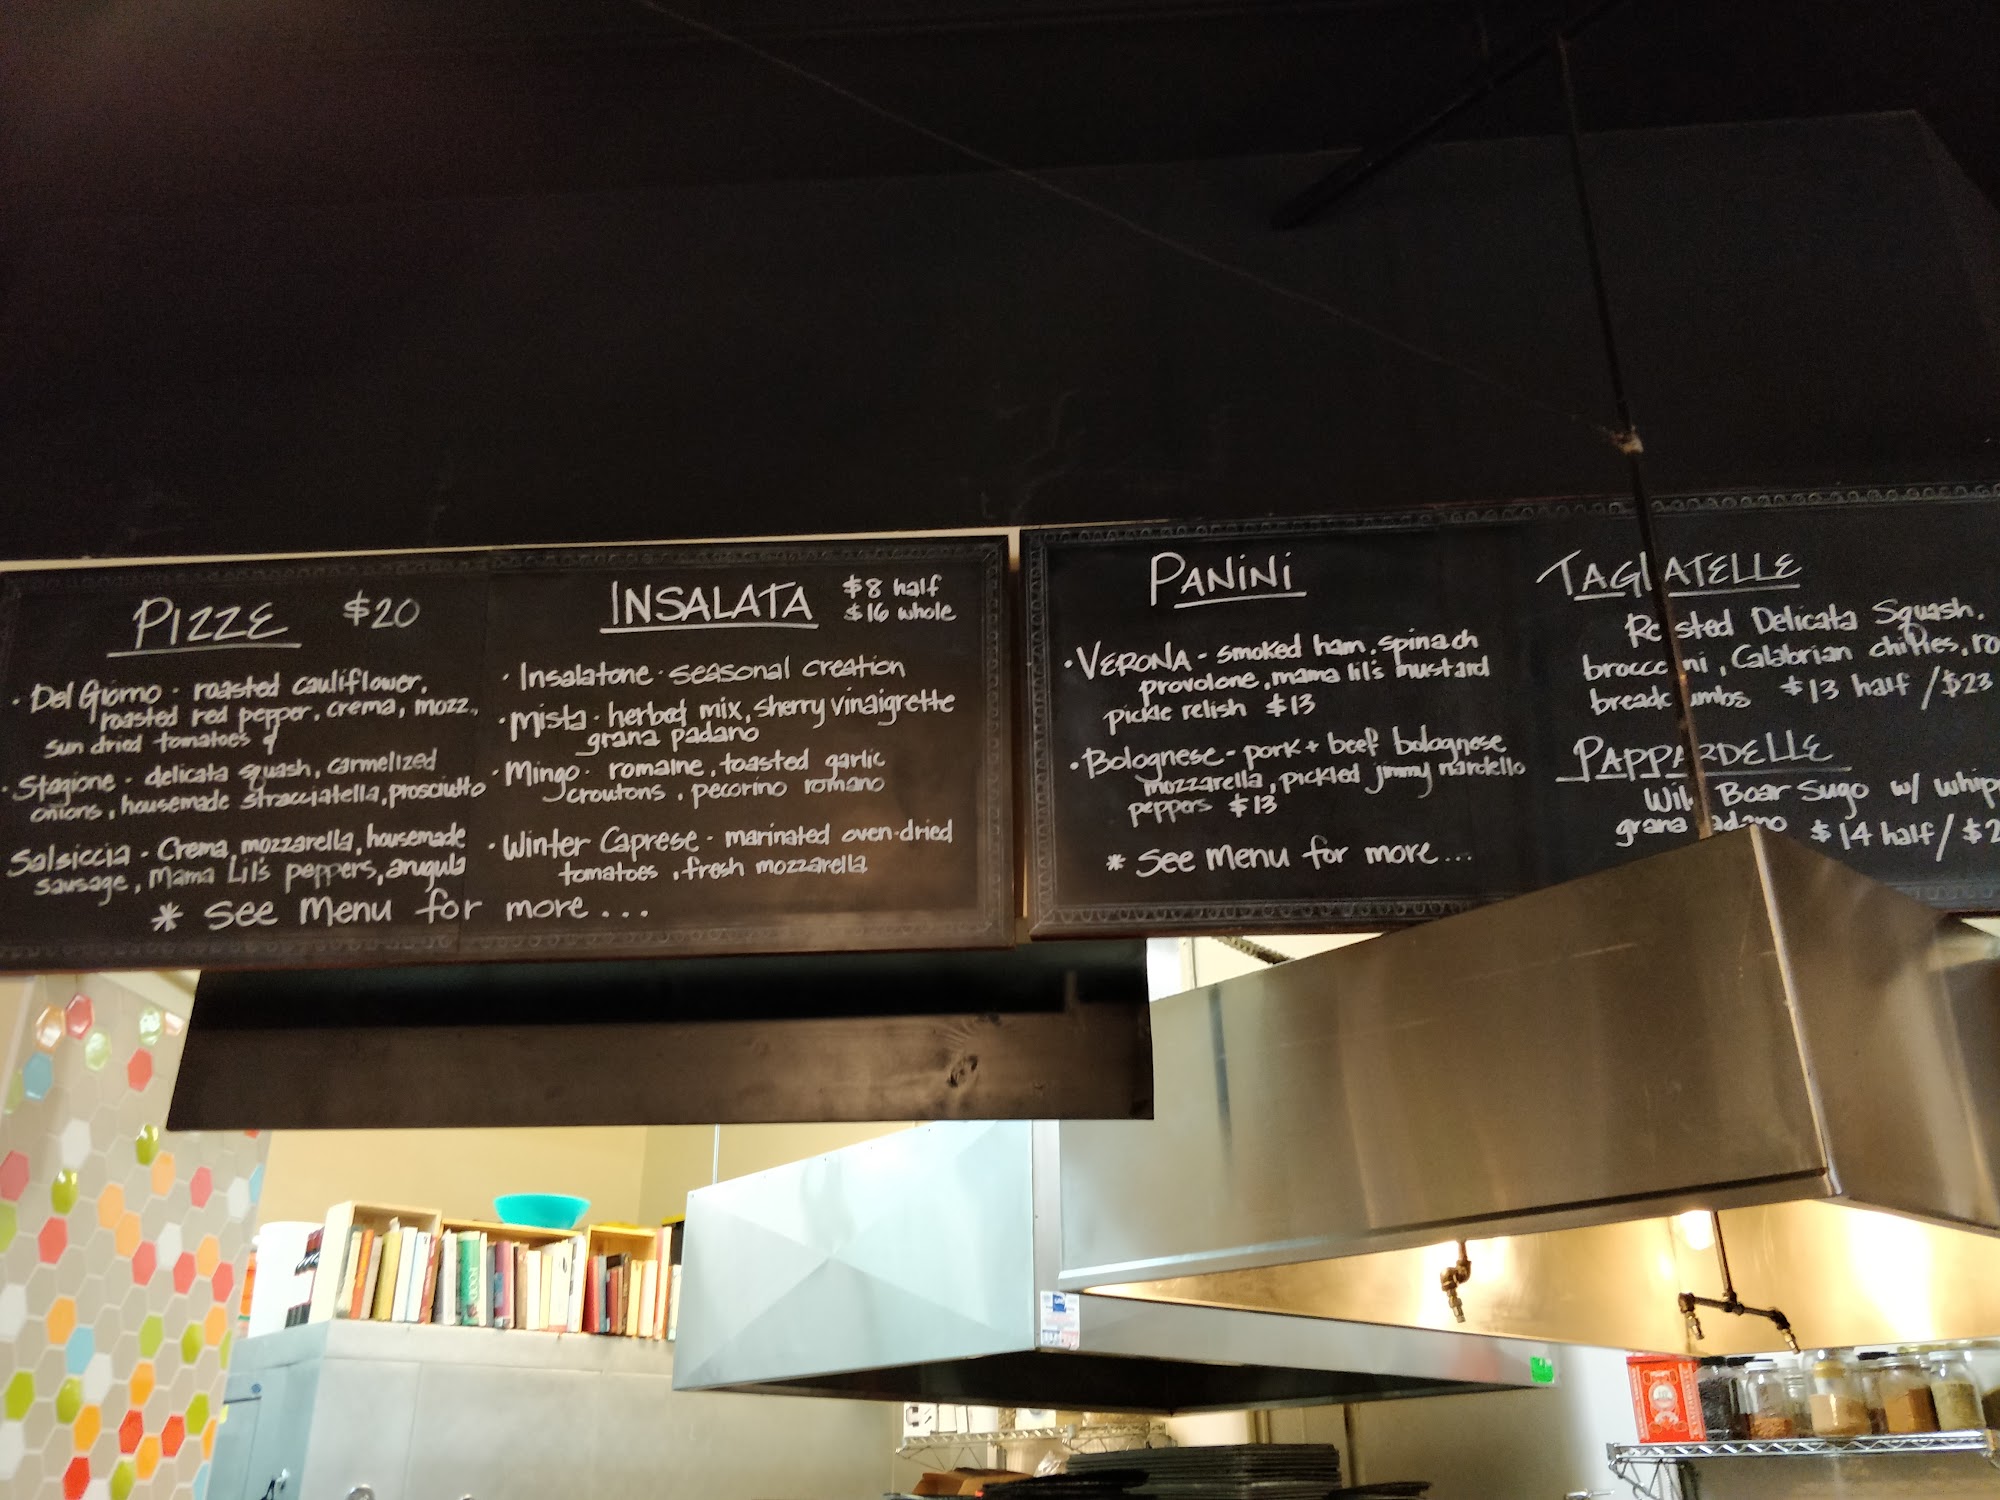 PIZZE $20
• Del Giorno - roasted cauliflower,
roasted red pepper, crema, mozz,
sun dried tomatoes
• Stagione - delicata squash, carmelized
onions, housemade stracciatella, prosciutto
Salsiccia - Crema, mozzarella, housemade
sausage, Mama Lil's peppers, arugula
* See Menu for more...
INSALATA $8 half
$16 whole
• Insalatone - seasonal creation
• Mista - herbed mix, sherry vinaigrette
grana padano
• Mingo - romaine, toasted garlic
croutons, pecorino romano
• Winter Caprese - marinated oven-dried
tomatoes, fresh mozzarella
PANINI
• VERONA - smoked ham, spinach
provolone, mama lil's mustard
pickle relish $13
• Bolognese - pork + beef bolognese
mozzarella, pickled jimmy nardello
peppers $13
* See Menu for more...
TAGLIATELLE
Roasted Delicata Squash,
broccolini, Calabrian chilies, ro
breadcrumbs $13 half / $23
PAPPARDELLE
Wild Boar Sugo w/ whip
grana padano $14 half / $2
FOOD